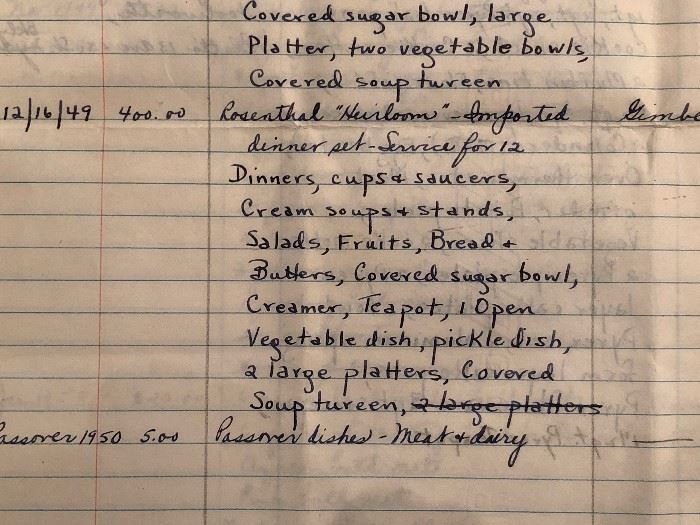 Covered sugar bowl, large
Platter, two vegetable bowls,
Covered soup tureen
12/16/49 400.00 Rosenthal "Heirloom" - Imported Gimbe
dinner set - Service for 12
Dinners, cups & saucers,
Cream soups & stands,
Salads, Fruits, Bread &
Butters, Covered sugar bowl,
Creamer, Teapot, 1 Open
Vegetable dish, pickle dish,
2 large platters, Covered
Soup tureen, 2 large platters
assover 1950 5.00 Passover dishes - Meat & dairy